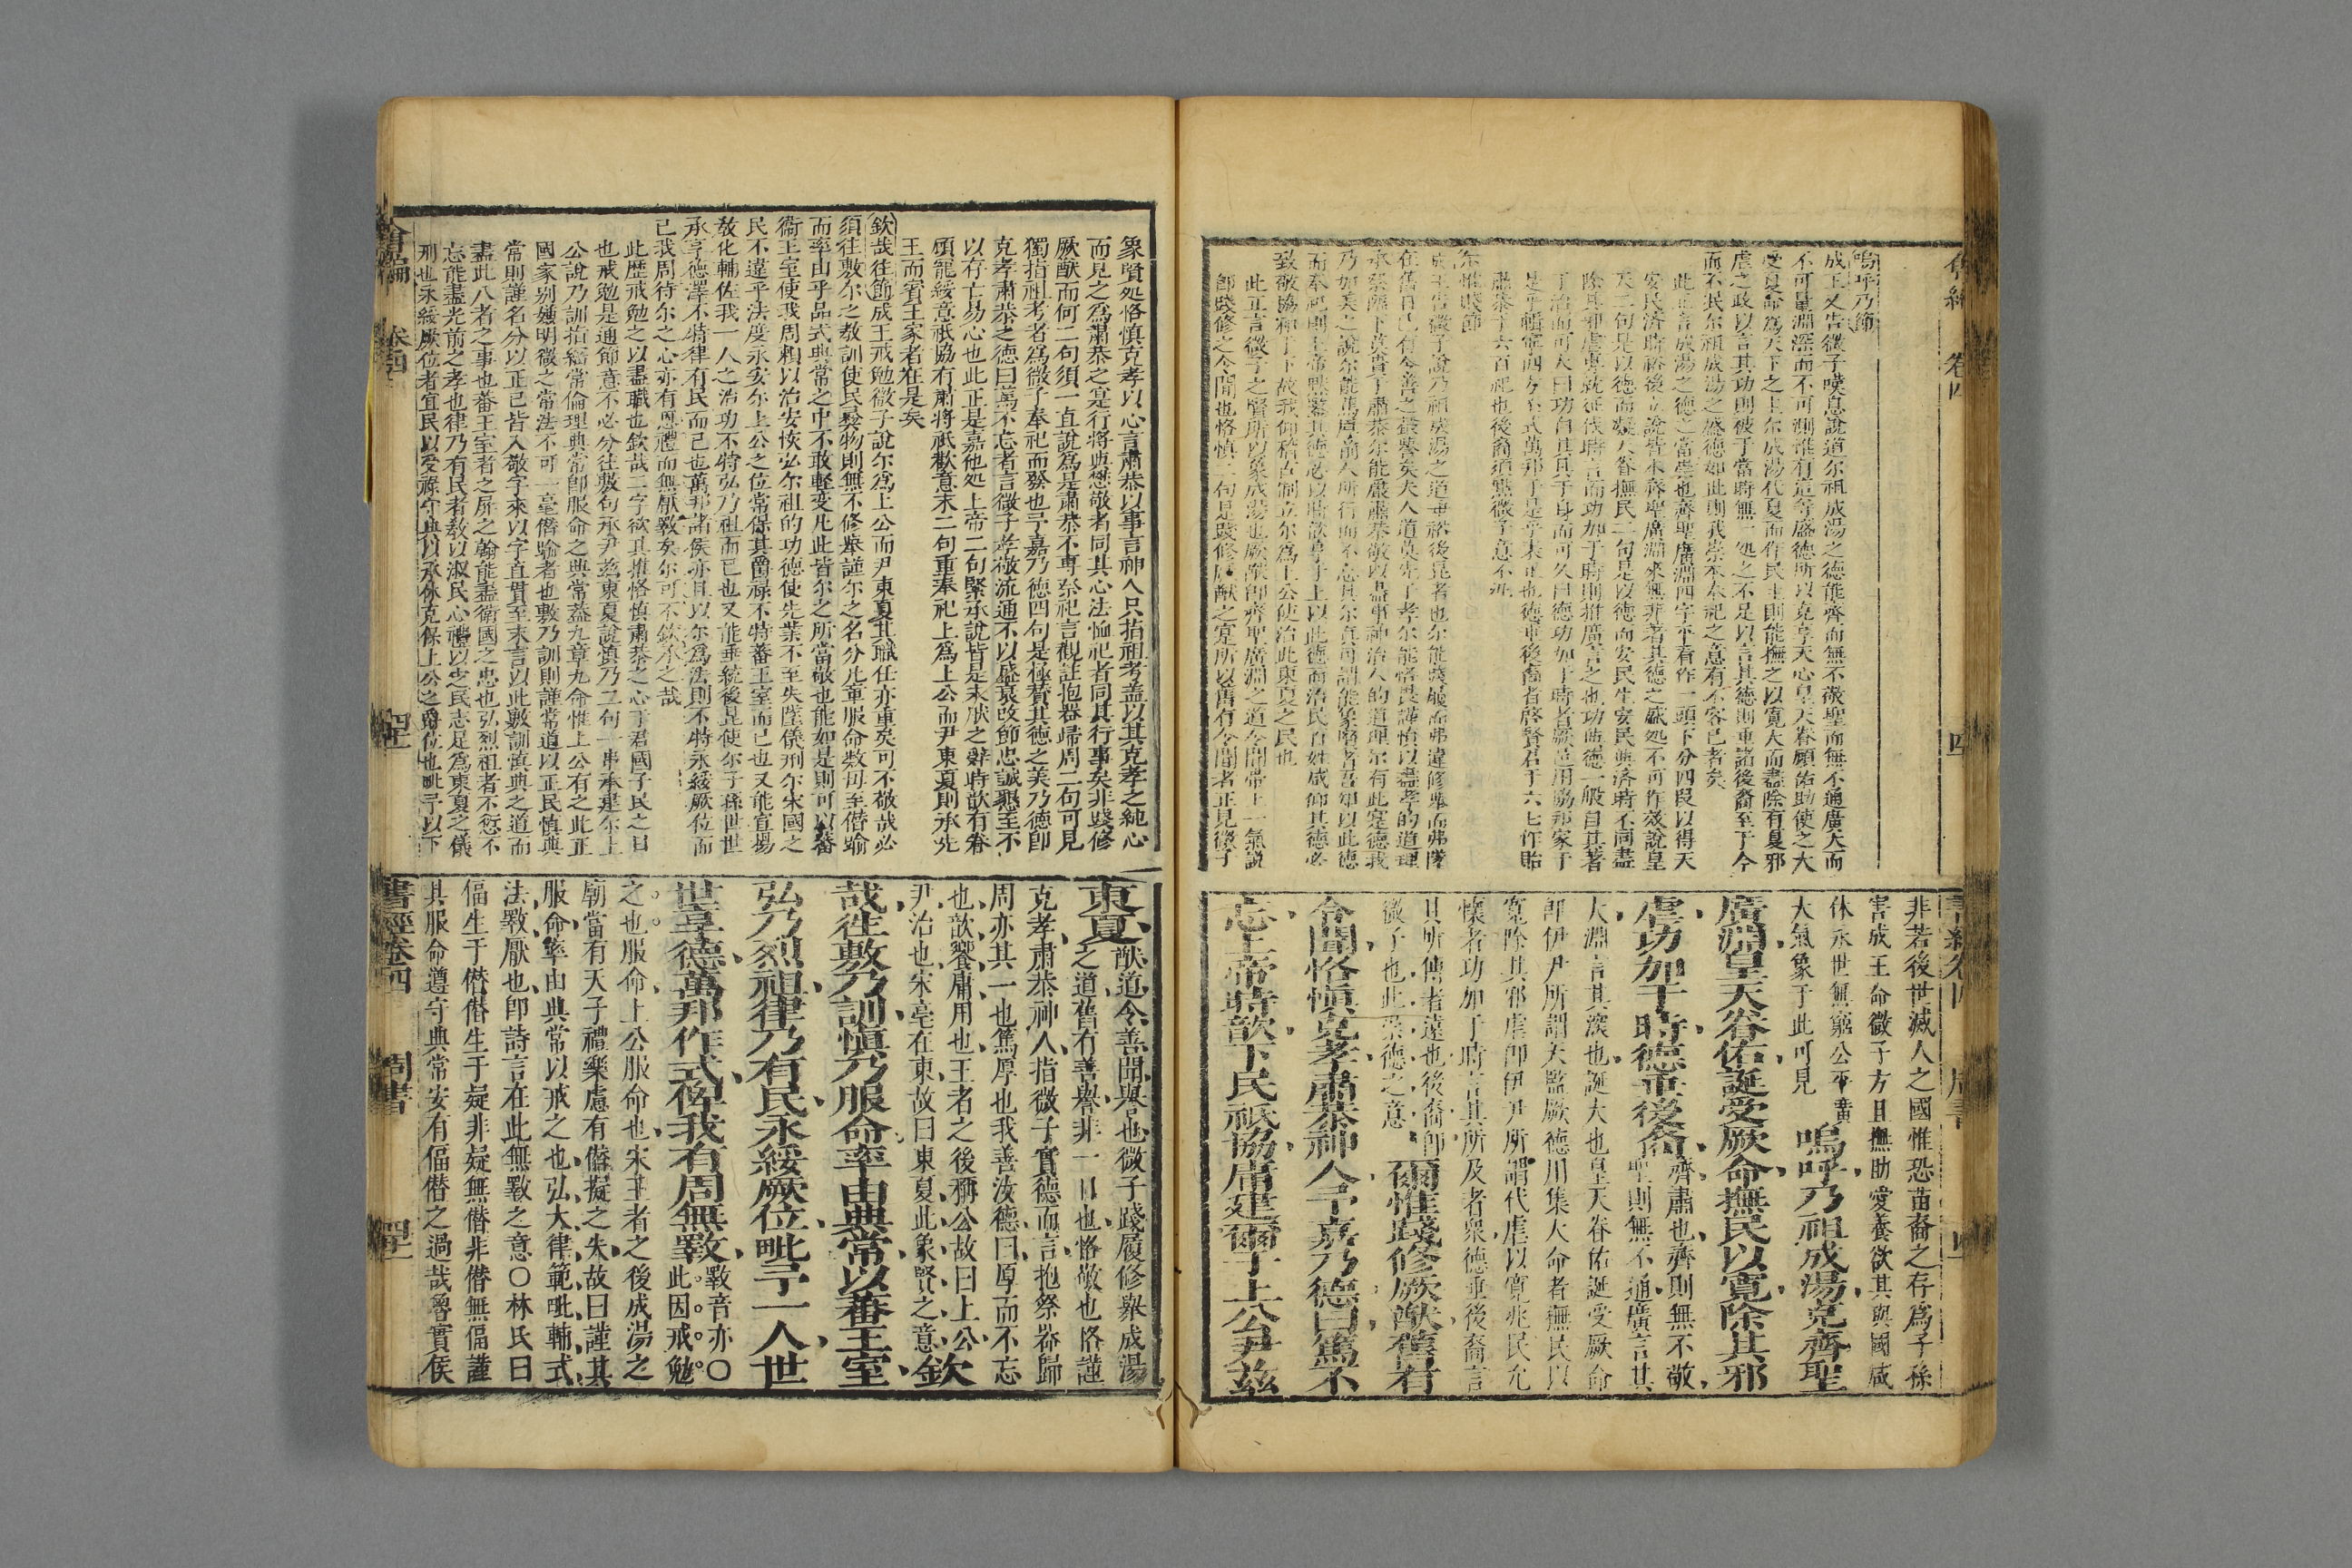 嗚呼乃節
成王又告微子嘆息說道尔祖成湯之德能齊而無不敬聖而無不通廣大而
不可量淵深而不可測惟有這等盛德所以克享天心皇天眷顧佑助使之大
受夏命為天下之主尔成湯代夏而作民主則能撫之以寬大而盡除有夏邪
虐之政以言其功則被于當時無一処之不足以言其德則垂諸後裔至于今
而不泯尔祖成湯之盛德如此則我崇本奉祀之意有不容已者矣
此正言成湯之德之當崇也齊聖廣淵四字平看作一頭下分四段以得天
安民濟時裕後立說皆本齊聖廣淵來無非著其德之
天二句是以德而凝大眷撫民二句是以德而安民生安民與濟時不同盡
除其邪虐專就征伐時言而功加于時則推廣言之也功與德一般自其著
于治而可大曰功自其具于身而可久曰德
肅恭于六百祀也後裔須黙微子意不
尔惟踐節
成王告微子說乃祖成湯之道垂裕後昆者也尔能踐履而弗違修舉而弗墜
在舊日已有令善之聲譽矣夫人道莫先于孝尔能恪畏謹慎以盡孝的道理
承祭臨下莫貴于肅恭尔能嚴肅恭敬以盡事神治人的道理尔有此寔德我
乃加美之說尔能篤厚前人所行而不忘其尔真可謂能象賢者吾知以此德
而奉祀則上帝黙鑒其德必以時歆享于上以此德而治民百姓咸仰其德必
致敬協和于下故我仰稽古制立尔為上公使治此東夏之民也
此正言微子之賢所以象成湯也厥猷卽齊聖廣淵之道令聞帶上一氣說
卽踐修之令聞也恪慎二句見踐修厥猷之寔所以舊有令聞者正見微子
非若後世滅人之國惟恐苗裔之存為子孫
害成王命微子方且撫助愛養欲其與國咸
休永世無窮公平廣
大氣象于此可見 嗚呼乃祖成湯克齊聖
廣淵皇天眷佑誕受厥命撫民以寬除其邪
虐功加于時德垂後裔 齊肅也齊則無不敬
聖則無不通廣言其
大淵言其深也誕大也皇天眷佑誕受厥命
卽伊尹所謂天監厥德用集大命者撫民以
寬除其邪虐卽伊尹所謂代虐以寬兆民允
懷者功加于時言其所及者衆德垂後裔言
其所傳者遠也後裔卽
微子也此崇德之意 爾惟踐修厥猷舊有
令聞恪慎克孝肅恭神人予嘉乃德曰篤不
忘上帝時歆下民祗協庸建爾于上公尹茲
象賢処恪慎克孝以心言肅恭以事言神人只指祖考盖以其克孝之純心
而見之為肅恭之寔行將與懋敬者同其心法恤祀者同其行事矣非踐修
厥猷而何二句須一直說為是肅恭不專祭祀言觀註抱器歸周二句可見
獨指祖考者為微子奉祀而發也予嘉乃德四句是極賛其德之美乃德卽
克孝肅恭之德曰篤不忘者言微子孝敬流通不以盛衰改節忠誠懇至不
以存亡易心也此正是嘉他処上帝二句緊承說皆是未然之辭時歆有眷
頋寵綏意祇協有肅將祇歡意末二句重奉祀上為上公而尹東夏則承先
王而賓王家者在是矣
欽哉往節
成王戒勉微子說尔為上公而尹東夏其職任亦重矣可不敬哉必
須往敷尔之教訓使民彝物則無不修舉謹尔之名分凡車服命数毋至僭踰
而率由乎品式典常之中不敢輕变凡此皆尔之所當敬也能如是則可以蕃
衞王室使我周賴以治安恢弘尔祖的功德使先業不至失墜儀刑尔宋國之
民不違乎法度永安尔上公之位常保其爵祿不特蕃王室而已也又能宣揚
敎化輔佐我一人之治功不特弘乃祖而已也又能垂統後昆使尔子孫世世
承享德澤不特律有民而已也萬邦諸侯亦且以尔為法則不特永綏厥位而
已我周待尔之心亦有恩禮而無厭斁矣尔可不欽承之哉
此歷戒勉之以盡職也欽哉二字欲其推恪慎肅恭之心于君國子民之日
也戒勉是通節意不必分往敷句承尹茲東夏說慎乃二句一串承建尔上
公說乃訓指經常倫理典常卽服命之典常葢九章九命惟上公有之此正
國家别嫌明微之常法不可一毫僭踰者也敷乃訓則謹常道以正民慎典
常則謹名分以正已皆入敬字來以字直貫至末言以此敷訓慎典之道而
盡此八者之事也蕃王室者之屏之翰能盡衞國之忠也弘烈祖者不愆不
忘能盡光前之孝也律乃有民者敎以淑民心禮以定民志足為東夏之儀
刑也永綏厥位者宜民以受祿守典以承休克保上公之爵位也毗予以下
東夏 猷道令善聞譽也微子踐履修舉成湯
之道舊有善譽非一日也恪敬也恪謹
克孝肅恭神人指微子實德而言抱祭器歸
周亦其一也篤厚也我善汝德曰厚而不忘
也歆饗庸用也王者之後稱公故曰上公
尹治也宋亳在東故曰東夏此象賢之意 欽
哉往敷乃訓慎乃服命率由典常以蕃王室
弘乃烈祖律乃有民永綏厥位毗予一人世
世享德萬邦作式俾我有周無斁 斁音亦○
此因戒勉
之也服命上公服命也宋王者之後成湯之
廟當有天子禮樂慮有僭擬之失故曰謹其
服命率由典常以戒之也弘大律範毗輔式
法斁厭也卽詩言在此無斁之意○林氏曰
偪生于僭僭生于疑非疑無僭非僭無偪謹
其服命遵守典常安有偪僭之過哉魯實侯
會編 卷四
書經卷四 周書